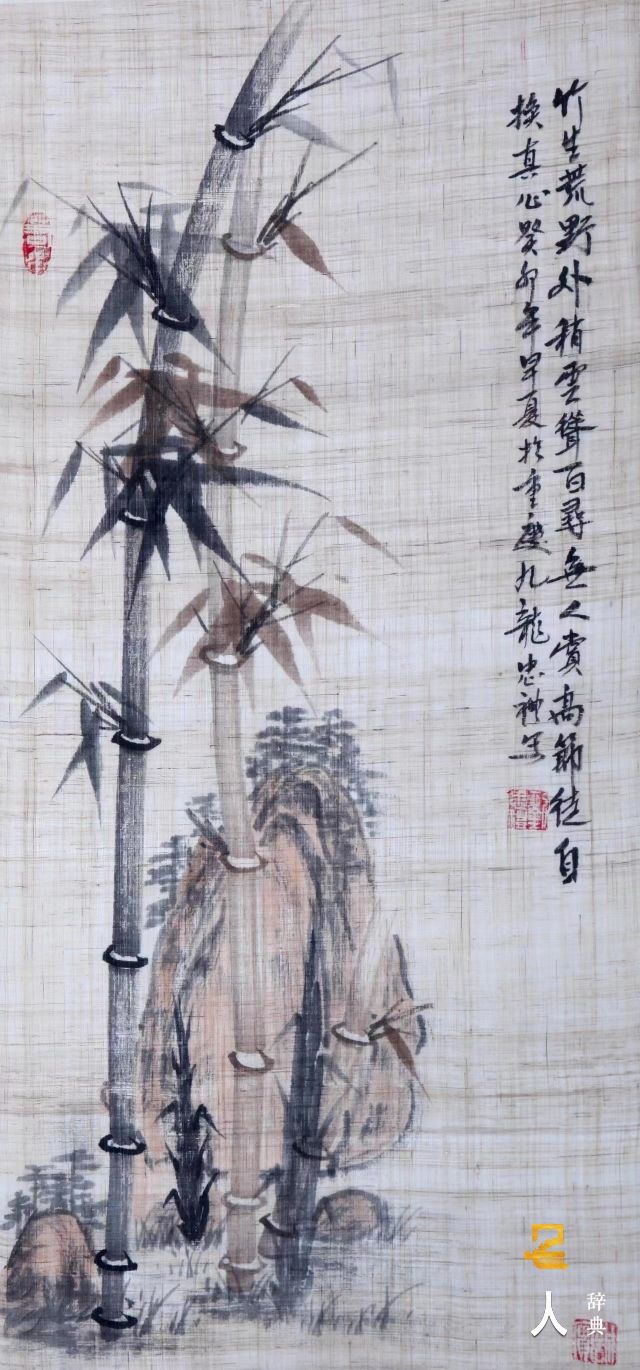 竹生荒野外稍雲聳百尋無人賞高節徒自
换真心癸卯年早夏於重慶九龍忠写
人
辞典